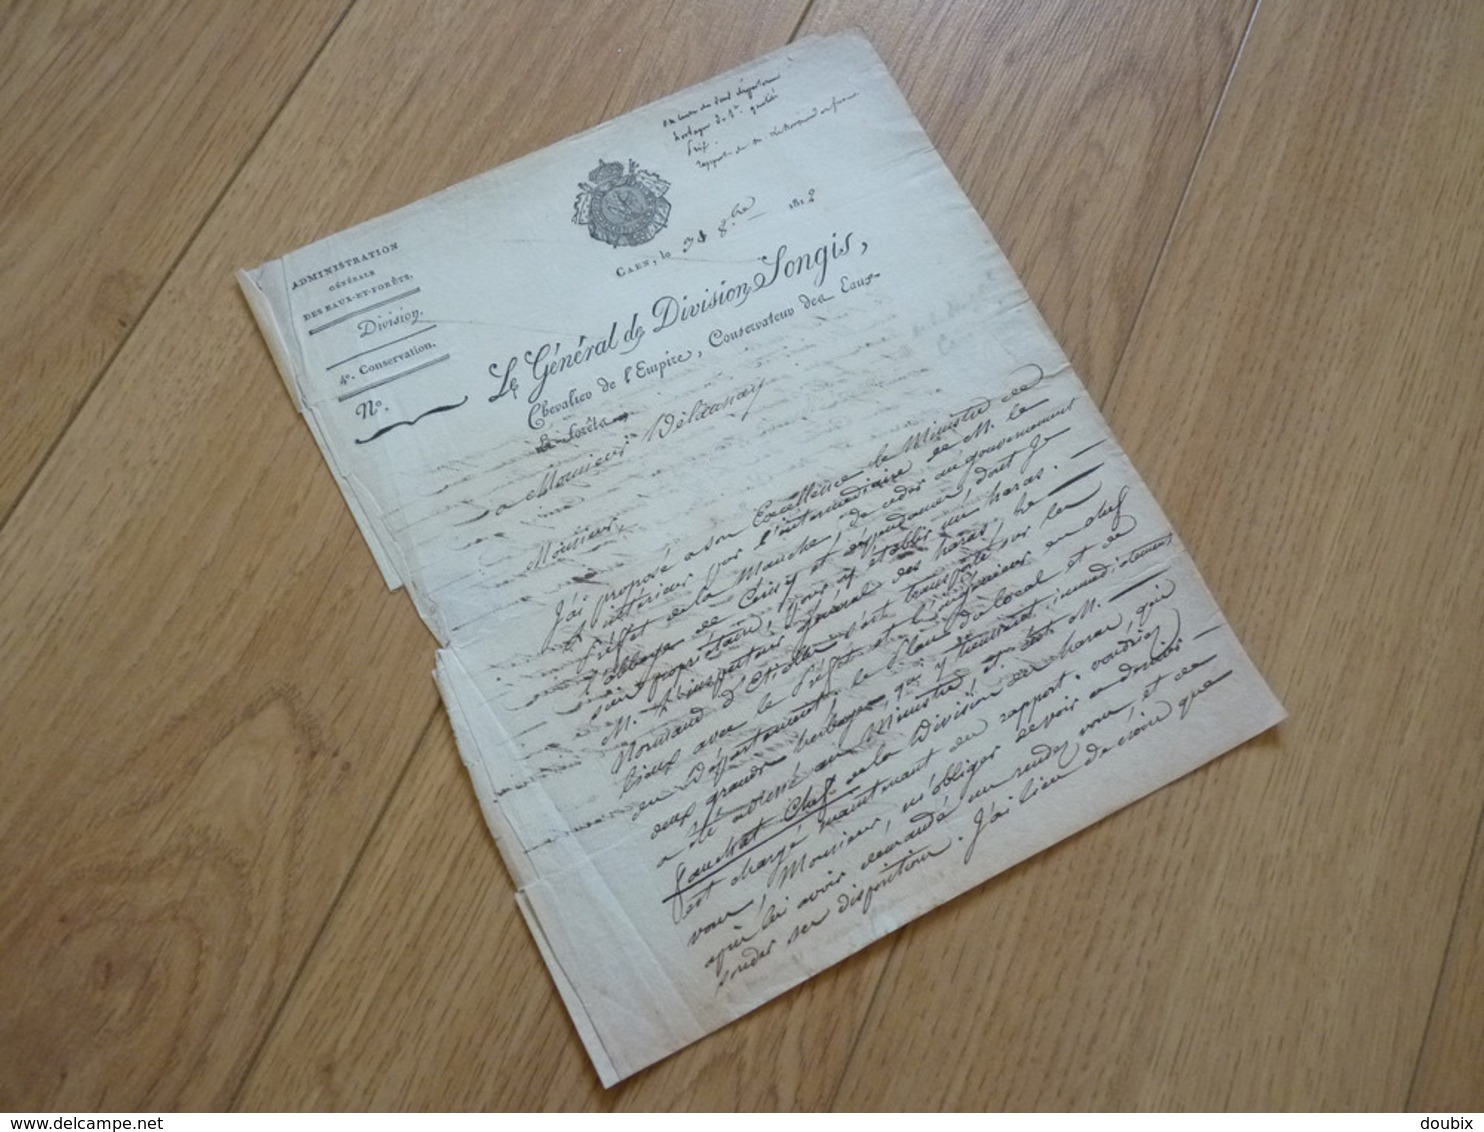 ADMINISTRATION
GÉNÉRALE
DES EAUX-ET-FORÊTS.
Division.
4e. Conservation.
No.
CAEN, le 8bre 1812
Le Général de Division Songis,
Chevalier de l'Empire, Conservateur des Eaux
et forêts
a Monsieur Delaunay
Monsieur,
J'ai proposé a son Excellence le Ministre de
l'intérieur par l'intermédiaire de M. le
Préfet de la Manche, de céder au gouvernement
l'abbaye de Cerisy et dépendances, dont je
suis propriétaire, pour y établir un haras.
M. l'inspecteur Général des haras, le
Normand d'Etioles s'est transporté sur les
lieux avec le Préfet et l'ingénieur en chef
du Département, le Plan du local et de
deux grands herbages, qui y tiennent immédiatement
a été adressé au Ministre, et c'est M.
Chef de la Division des haras, qui
est chargé maintenant du rapport, voudriez
vous, Monsieur, m'obliger de voir ce dernier
après lui avoir demandé un rendez vous, et de
sonder ses dispositions. J'ai lieu de croire que
www.delcampe.net
doubix